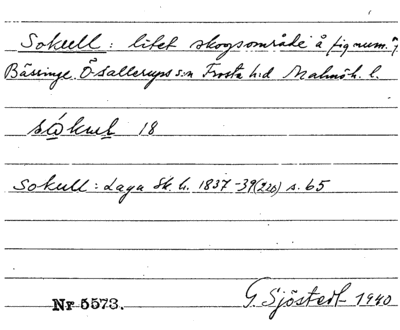 Sokull: litet skogsområde å fig num. 7
Bässinge. Ö Sallerups s:n Frosta h:d Malmöh. l.
såkul 18
Sokull: Laga Sk. h. 1837-39(220) s. 65
Nr 5573. G. Sjöstedt 1940